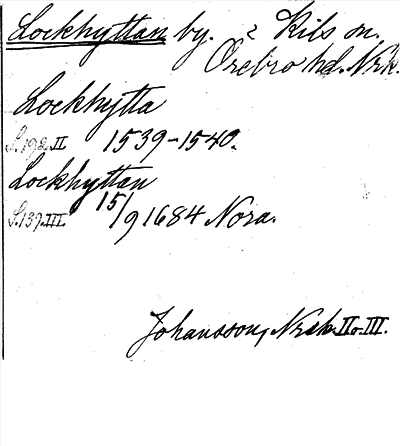 Lockhyttan by. i Kils sn.
Örebro hd. Nrk.
Lockhytta
S.192.II 1539-1540.
Lockhyttan
S.139.III. 15/9 1684 Nora.
Johansson, Nrk II o. III.